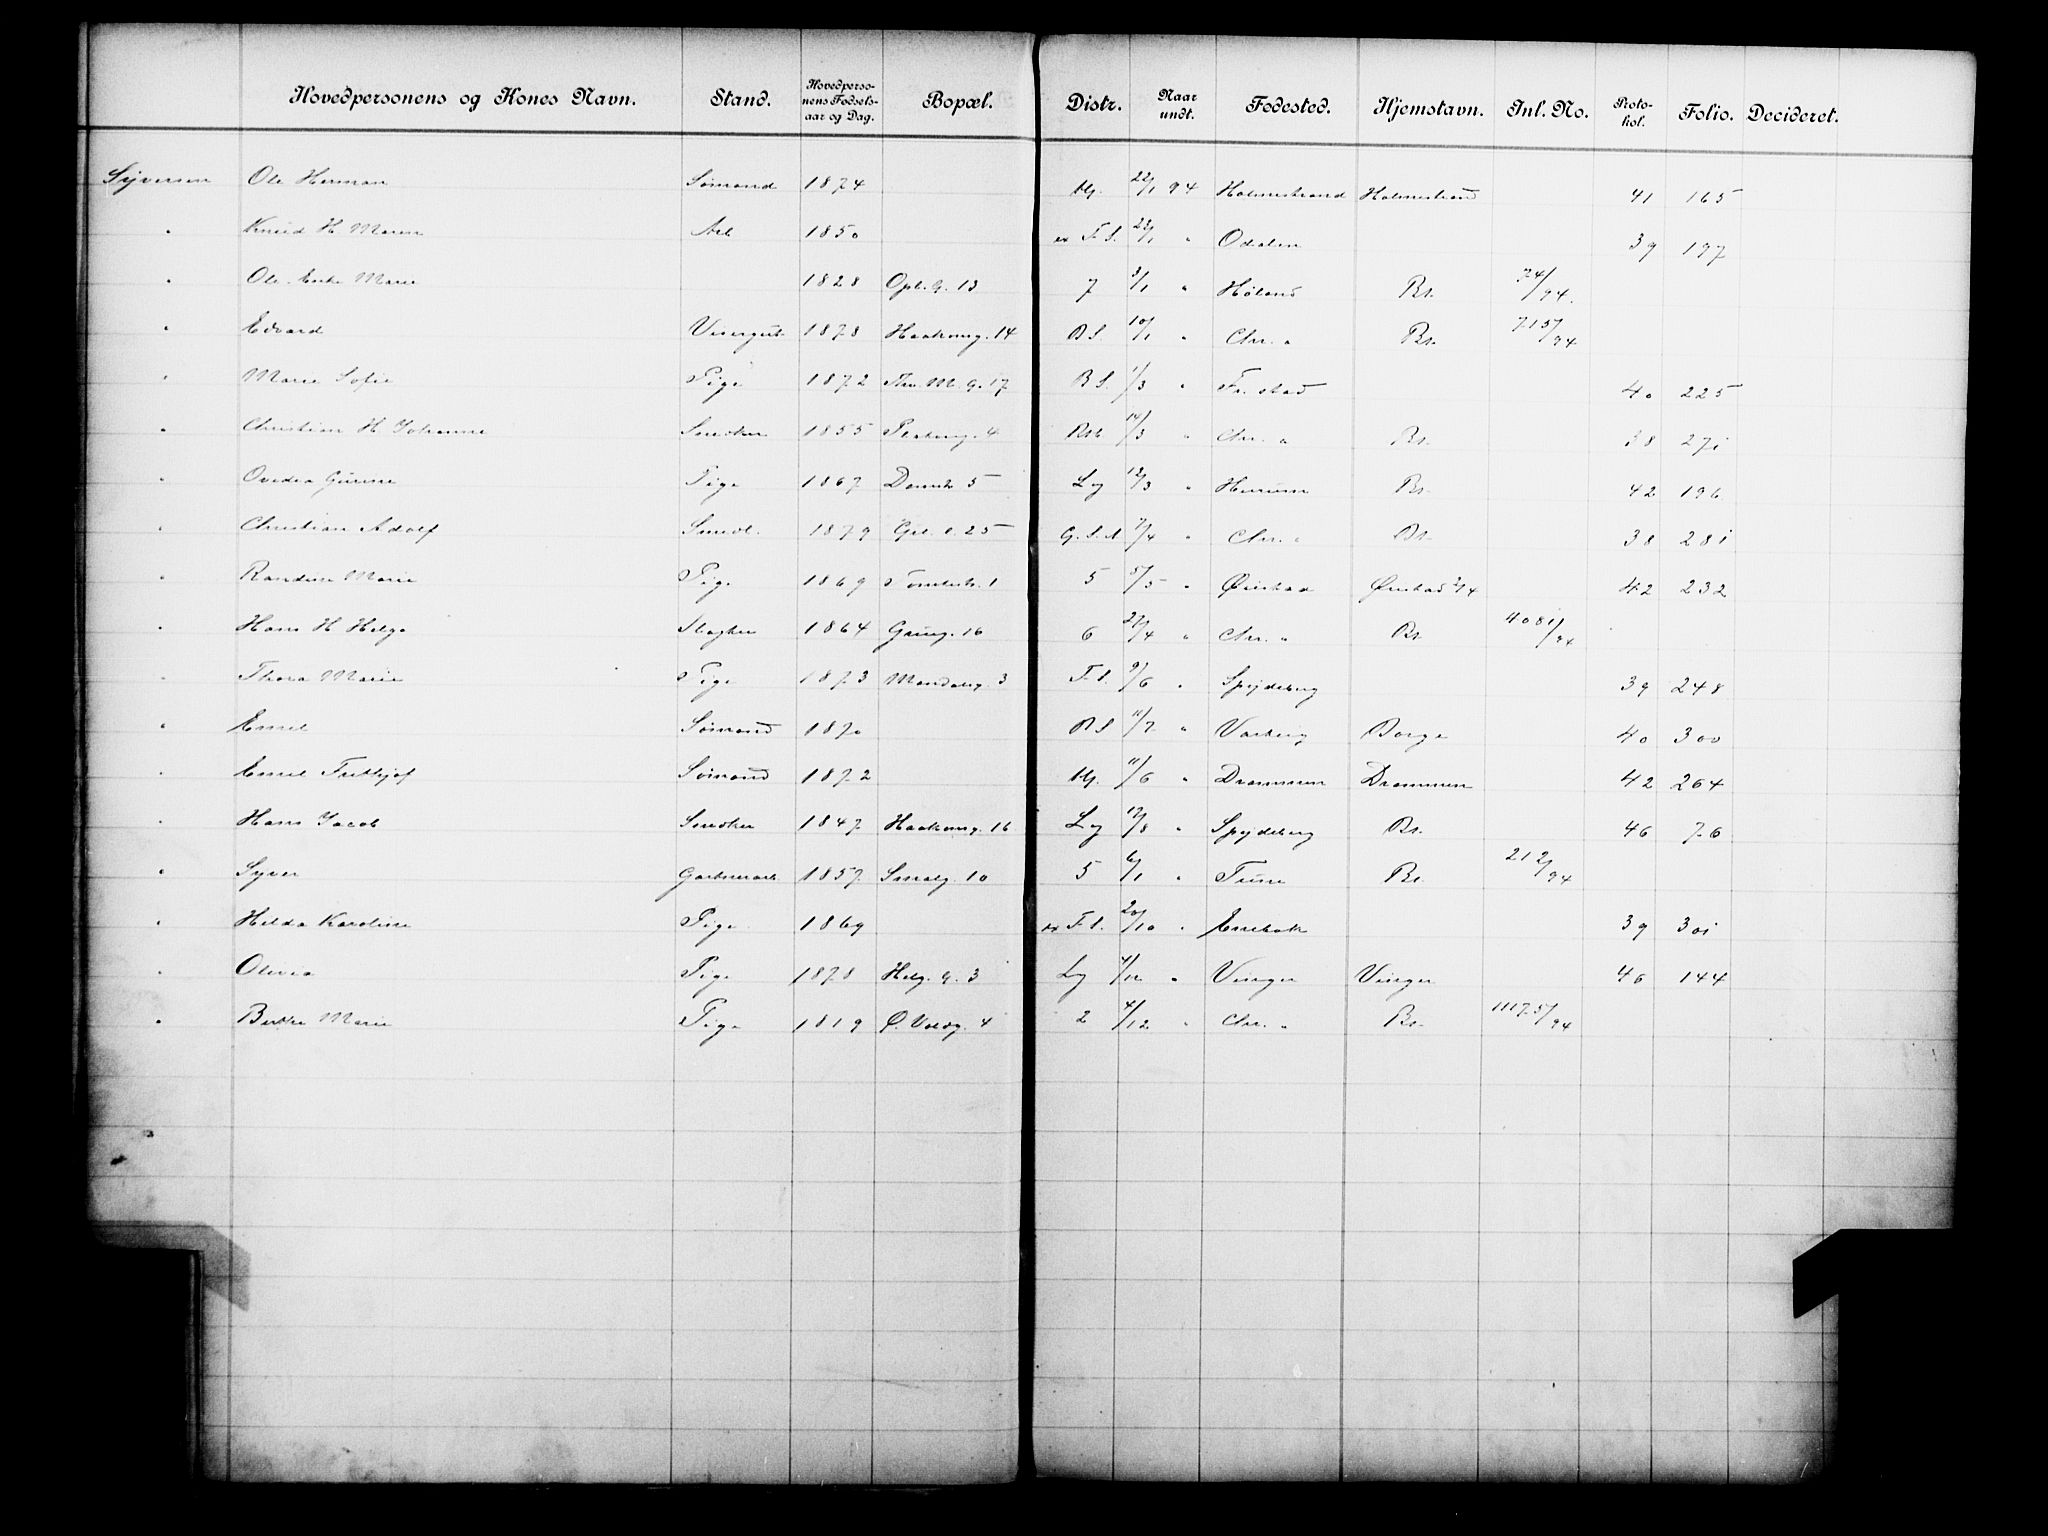 Hovedpersonens og Kones Navn. Stand. Hovedperso-nens Fødsels-aar og Dag. Bopæl. Distr. Naar undt. Fødested. Hjemstavn. Inl. No. Proto-kol. Folio. Decideret.
Syversen Ole Herman Sømand 1874 22/1 94 Holmestrand Holmestrand 41 165
" Knud H. Maren Arb 1850 F. S. 22/1 " Odalen 39 197
" Ole Enke Marie 1828 Opl. G. 13 7 3/1 " Høland Bs. 74/94.
" Edvard Visergut 1878 Haakonsg. 14 B S. 10/1 " Chr. a Bs. 715/94
" Marie Sofie Pige 1872 Thv. M. G. 17 B S. 1/3 " Fr. stad 40 225
" Christian H Johanne Snedker 1855 4 14/3 " Chr. a Bs. 38 271
" Ovedia Gurine Pige 1867 5 Lg 12/3 " Hurum Bs. 42 196
" Christian Adolf Smedl. 1879 25 G. S. A 7/4 " Chr. a Bs. 38 281
" Randine Marie Pige 1869 Tomtest. 1 5 5/5 " 42 232
" Hans H Helga Slagter 1864 Grüng. 16 6 27/4 " Chr. a Bs. 4081/94
" Thora Marie Pige 1873 Mandalsg. 3 F. S. 9/6 " Spydeberg 39 248
" Emil Sømand 1870 B S 11/7. " Varberg Borge 40 300
" Emil Frithjof Sømand 1872 11/6 " Drammen Drammen 42 264
" Hans Jacob Snedker 1847 Haakonsg. 16 Lg 12/8 " Spydeberg Bs. 46 76
" Syver Gartnerarb. 1857 Smalg. 10 5 6/1 " Tune Bs. 212/94
" Hilda Karoline Pige 1869 F S. 20/10 " Enebak 39 301
" Olivia Pige 1878 Helg. G. 3 Lg 4/12 " Vinger Vinger 46 144
" Berthe Marie Pige 1819 Ø. Voldg. 4 2 4/12 " Chr. a Bs. 11175/94